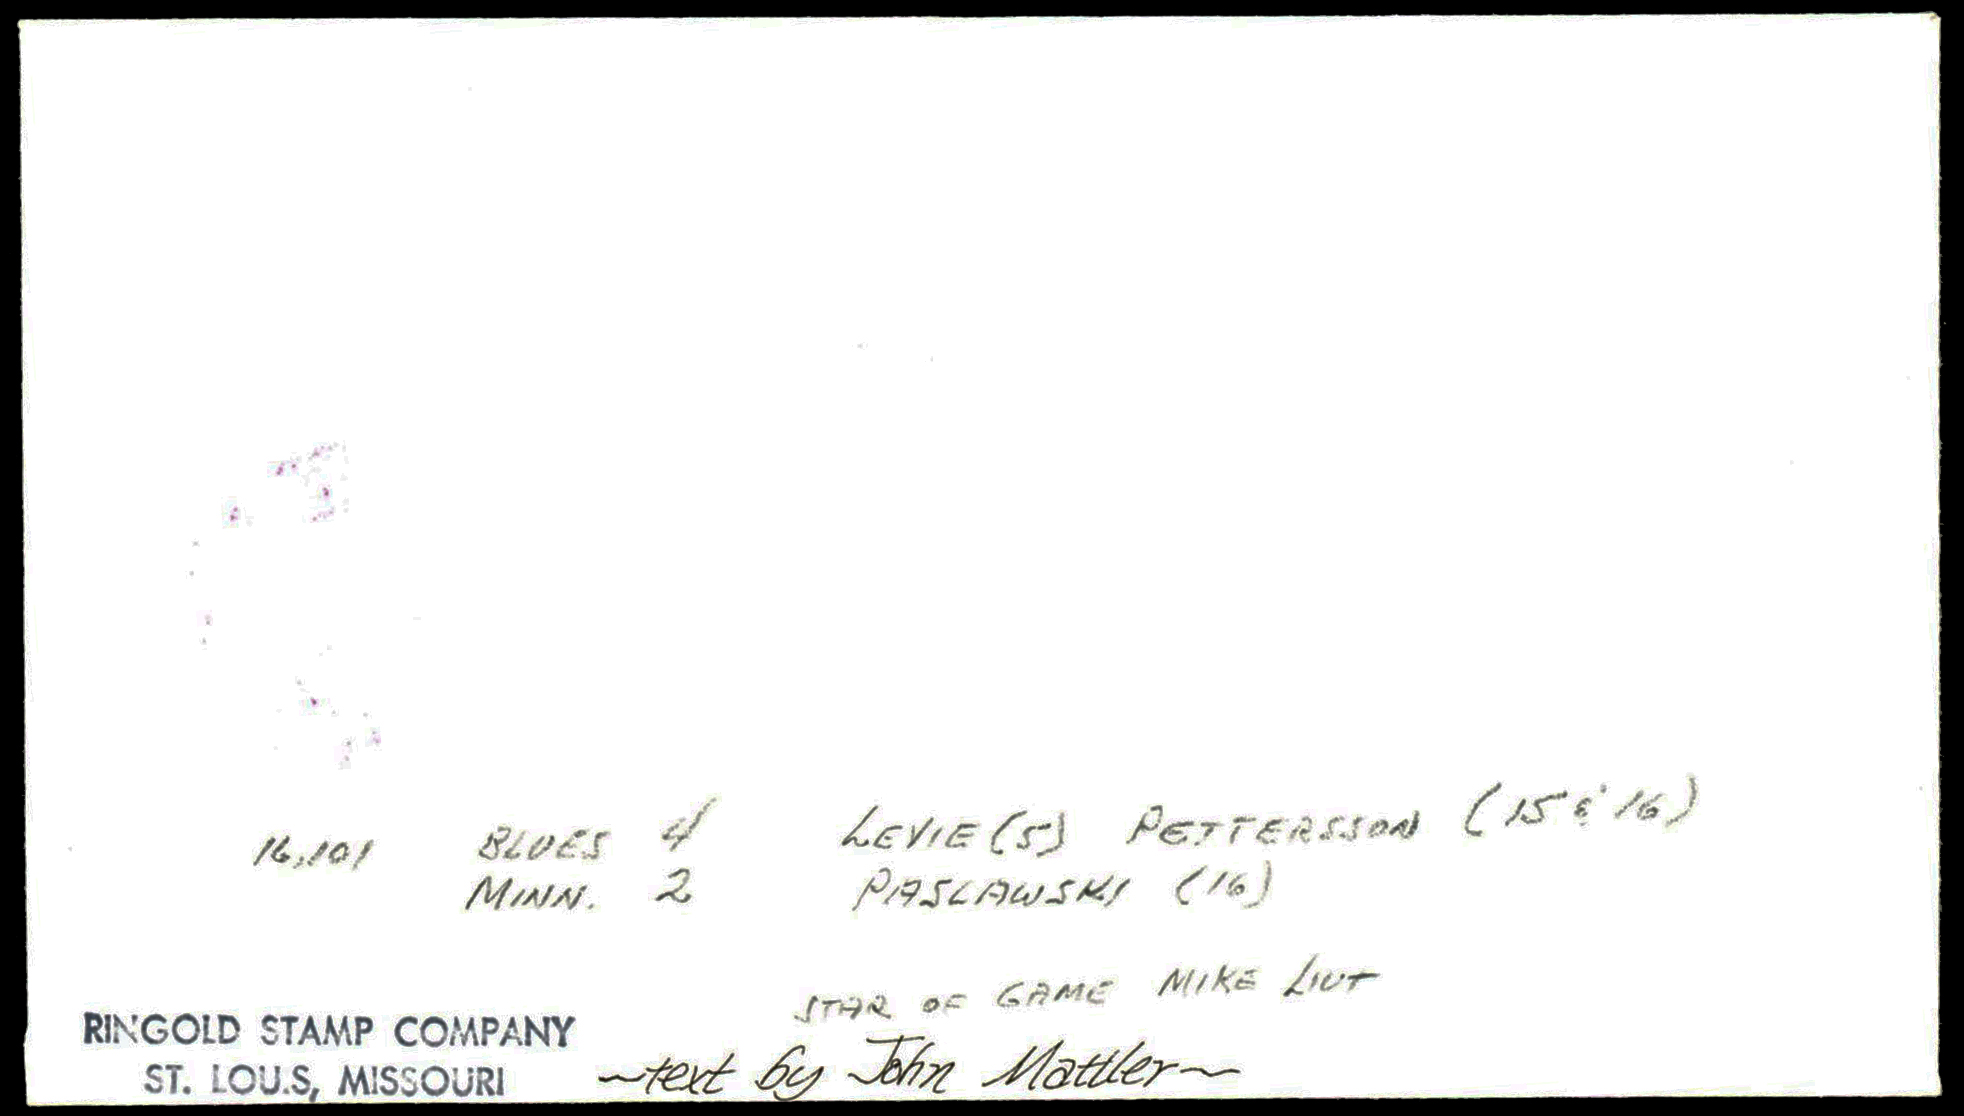 16,101 BLUES 4 LEVIE (5) PETTERSSON (15 & 16)
MINN. 2 PASLAWSKI (16)
STAR OF GAME MIKE LIUT
RINGOLD STAMP COMPANY
ST. LOUIS, MISSOURI
~text by John Mattler~